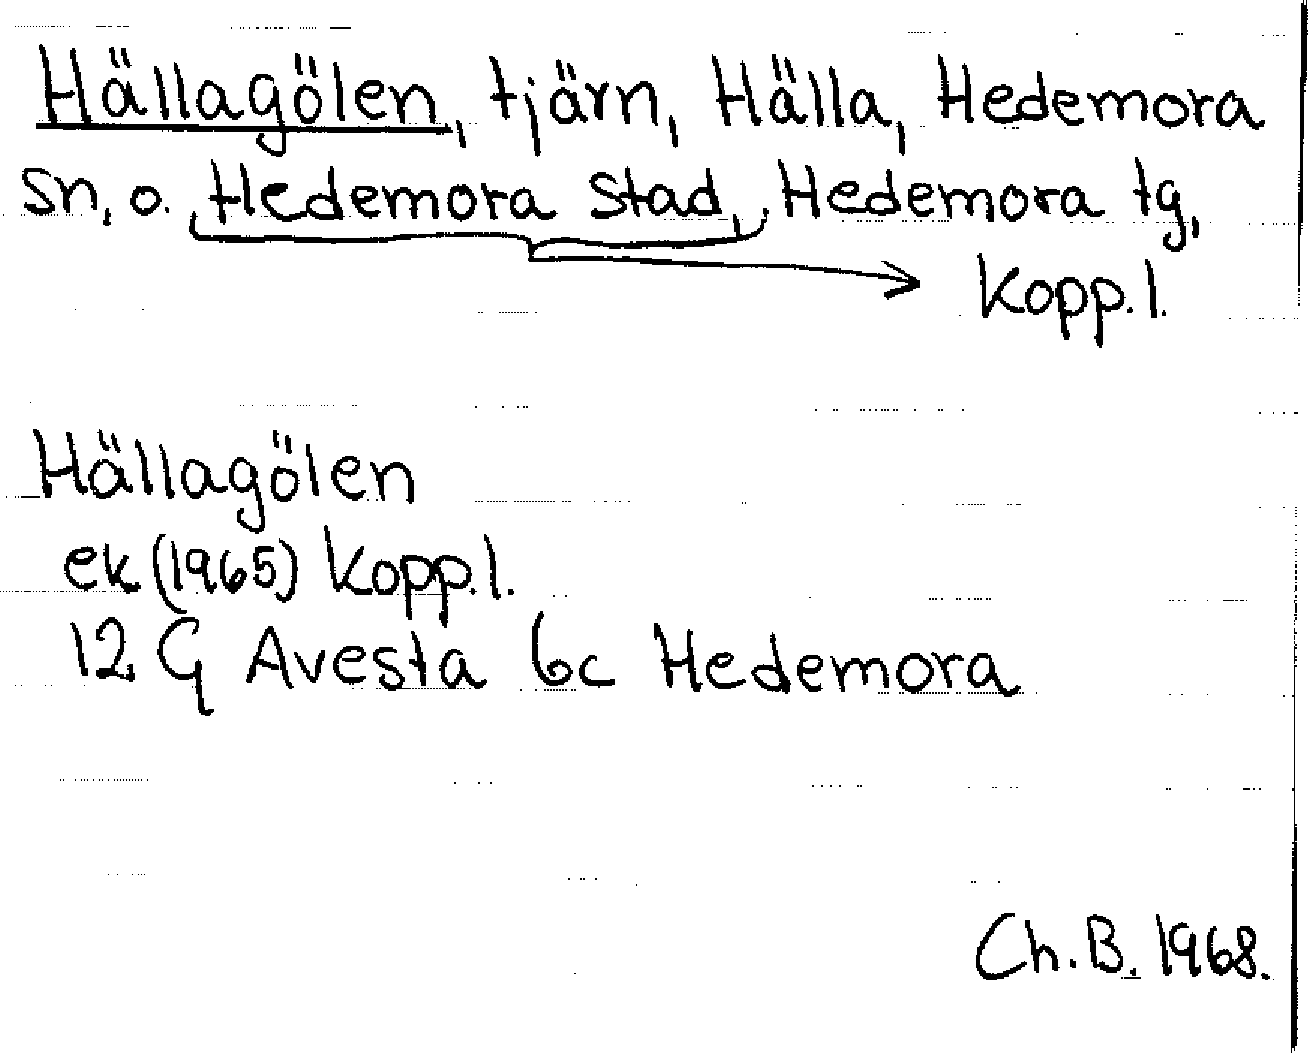 Hällagölen, tjärn, Hälla, Hedemora
sn, o. Hedemora stad, Hedemora tg,
Kopp. l.
Hällagölen
ek (1965) Kopp. l.
12 G Avesta 6c Hedemora
Ch. B. 1968.